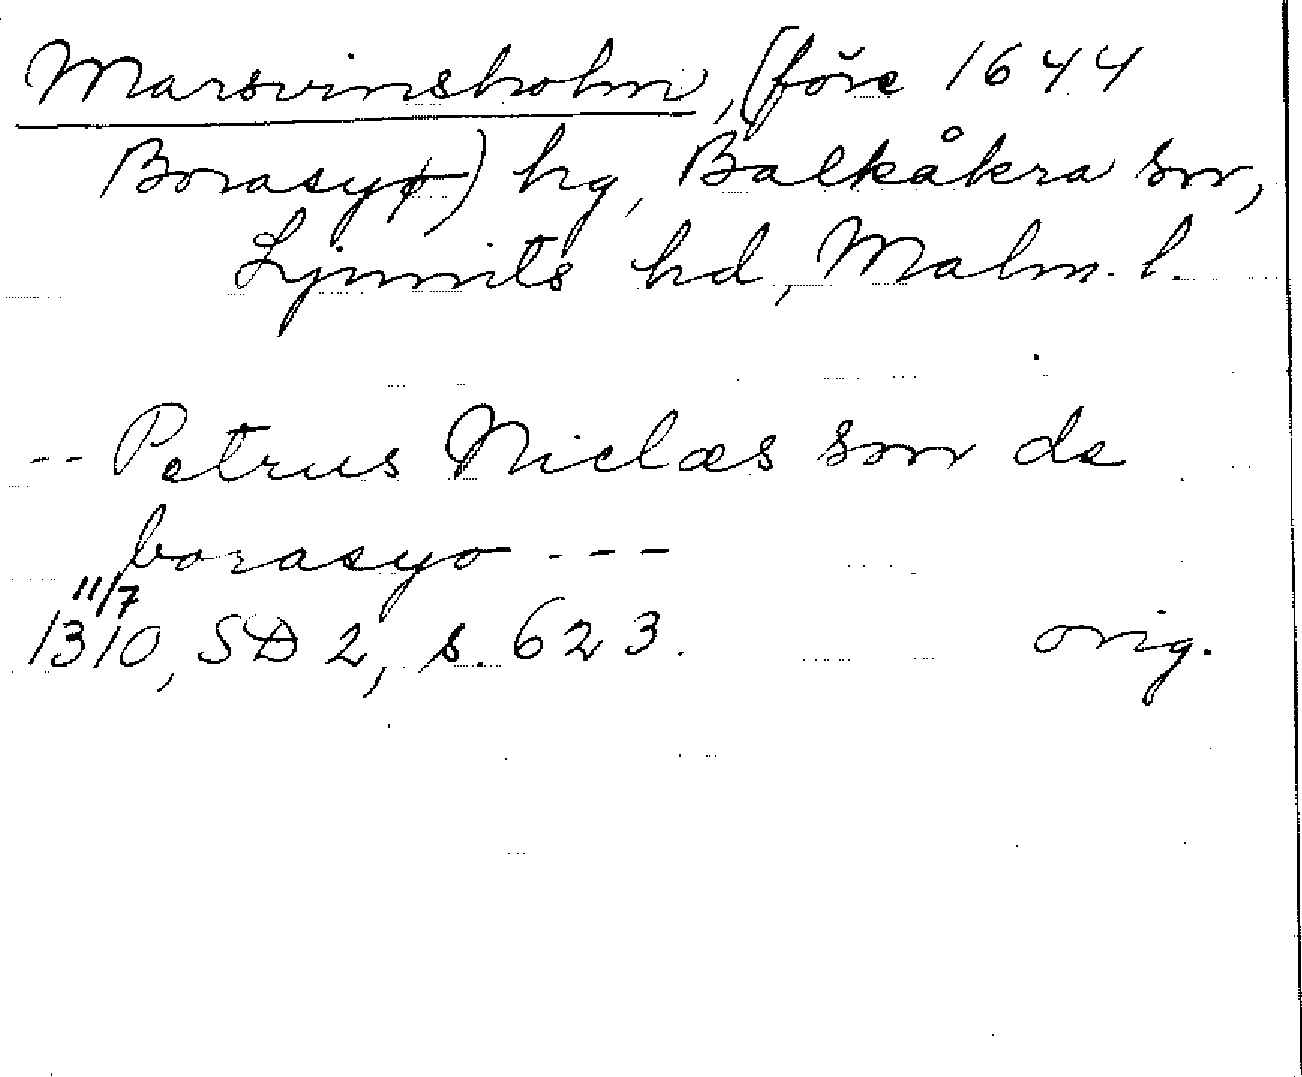 Marsvinsholm, (före 1644
Borasyø) hg, Balkåkra sn,
Ljunits hd, Malm. l.
-- Petrus Niclæs son de
borasyo ---
11/7
1310, SD 2, s. 623. orig.